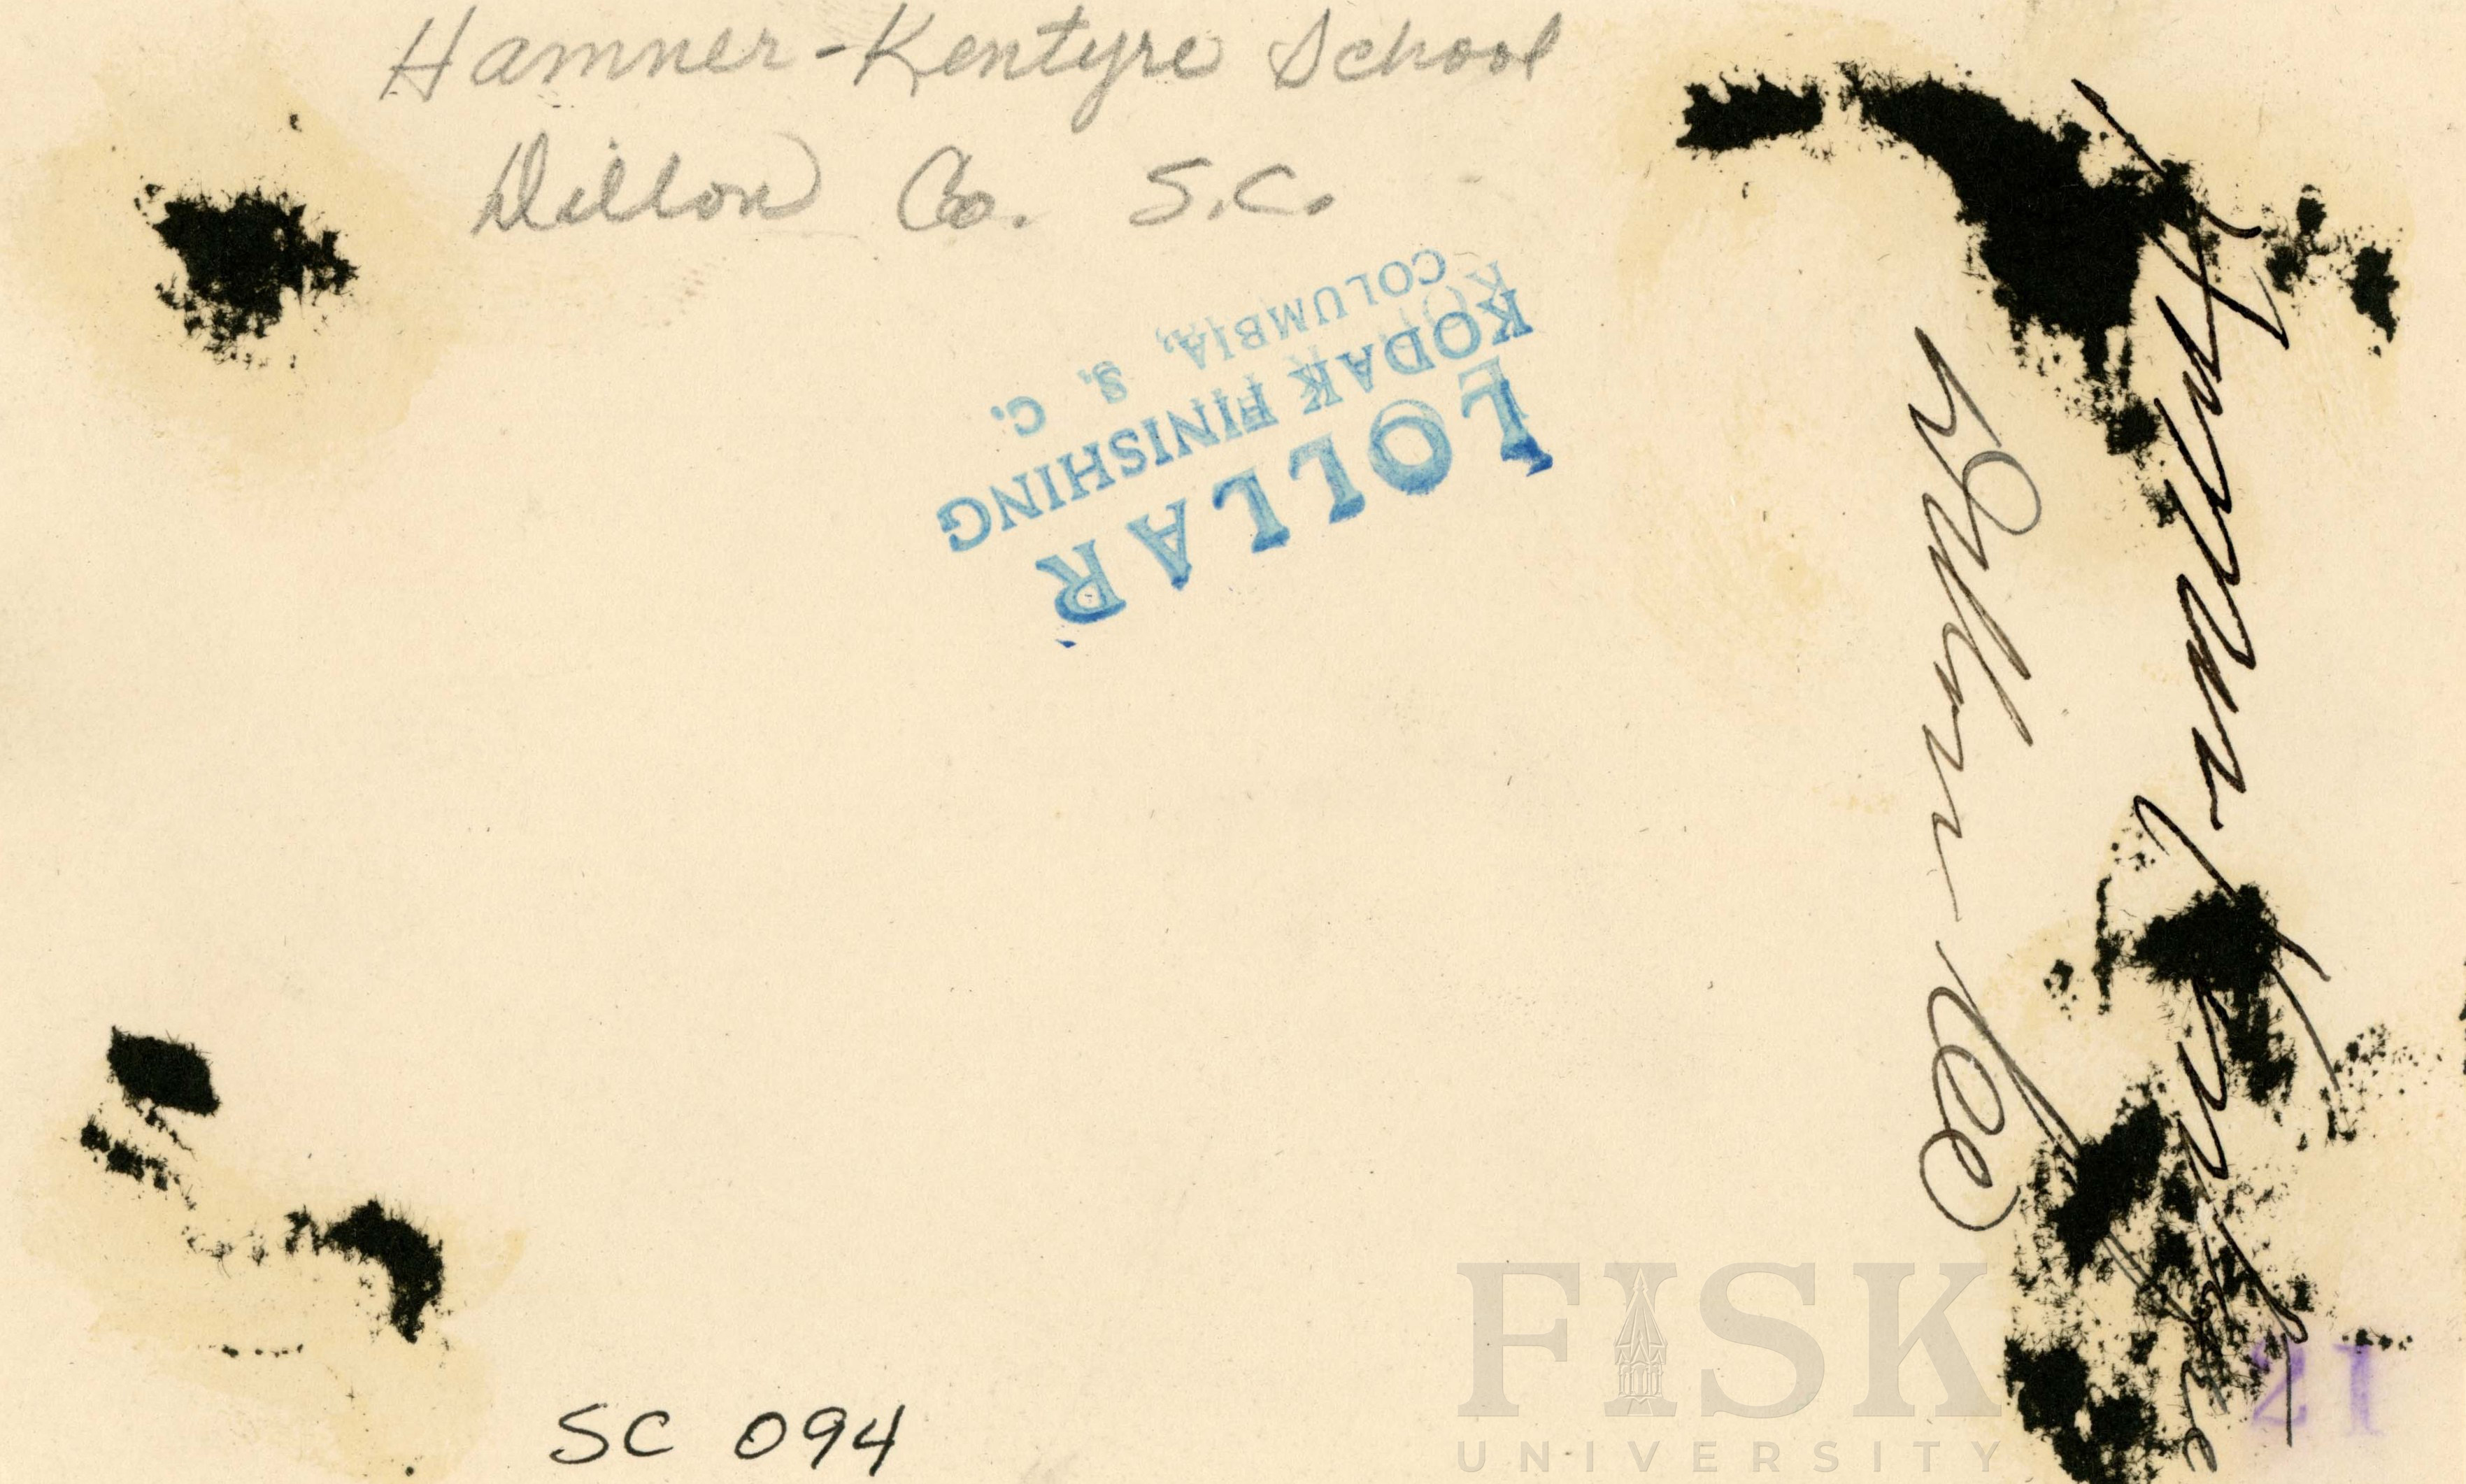 Hamner-Kentyre School
Dillon Co. S.C.
LOLLAR
KODAK FINISHING
COLUMBIA, S. C.
Dillon Co
SC 094
21
FISK
UNIVERSITY